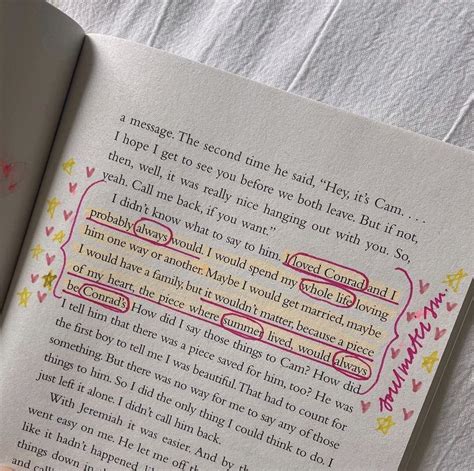 a message. The second time he said, "Hey, it's Cam. . . .
I hope I get to see you before we both leave. But if not,
then, well, it was really nice hanging out with you. So,
yeah. Call me back, if you want."
I didn't know what to say to him. I loved Conrad and I
probably always would. I would spend my whole life loving
him one way or another. Maybe I would get married, maybe
I would have a family, but it wouldn't matter, because a piece
of my heart, the piece where summer lived, would always
be Conrad's. How did I say those things to Cam? How did
I tell him that there was a piece saved for him, too? He was
the first boy to tell me I was beautiful. That had to count for
something. But there was no way for me to say any of those
things to him. So I did the only thing I could think to do. I
just left it alone. I didn't call him back.
With Jeremiah it was easier. And by the
went easy on me. He let me off the
like it hadn't happened, like
things down in
and call
soulmates